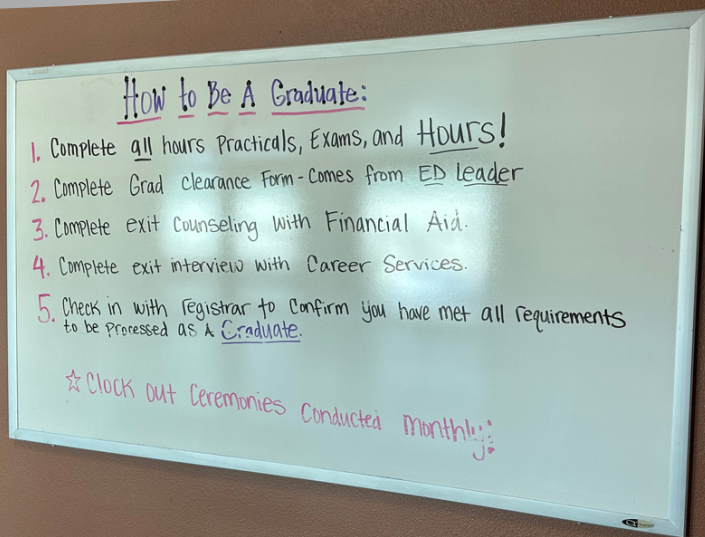 How to Be A Graduate:
1. Complete all hours Practicals, Exams, and Hours!
2. Complete Grad clearance Form - Comes from ED Leader
3. Complete exit counseling with Financial Aid.
4. Complete exit interview with Career Services.
5. Check in with registrar to Confirm you have met all requirements
to be Processed as A Graduate.
☆ Clock out Ceremonies Conducted monthly!